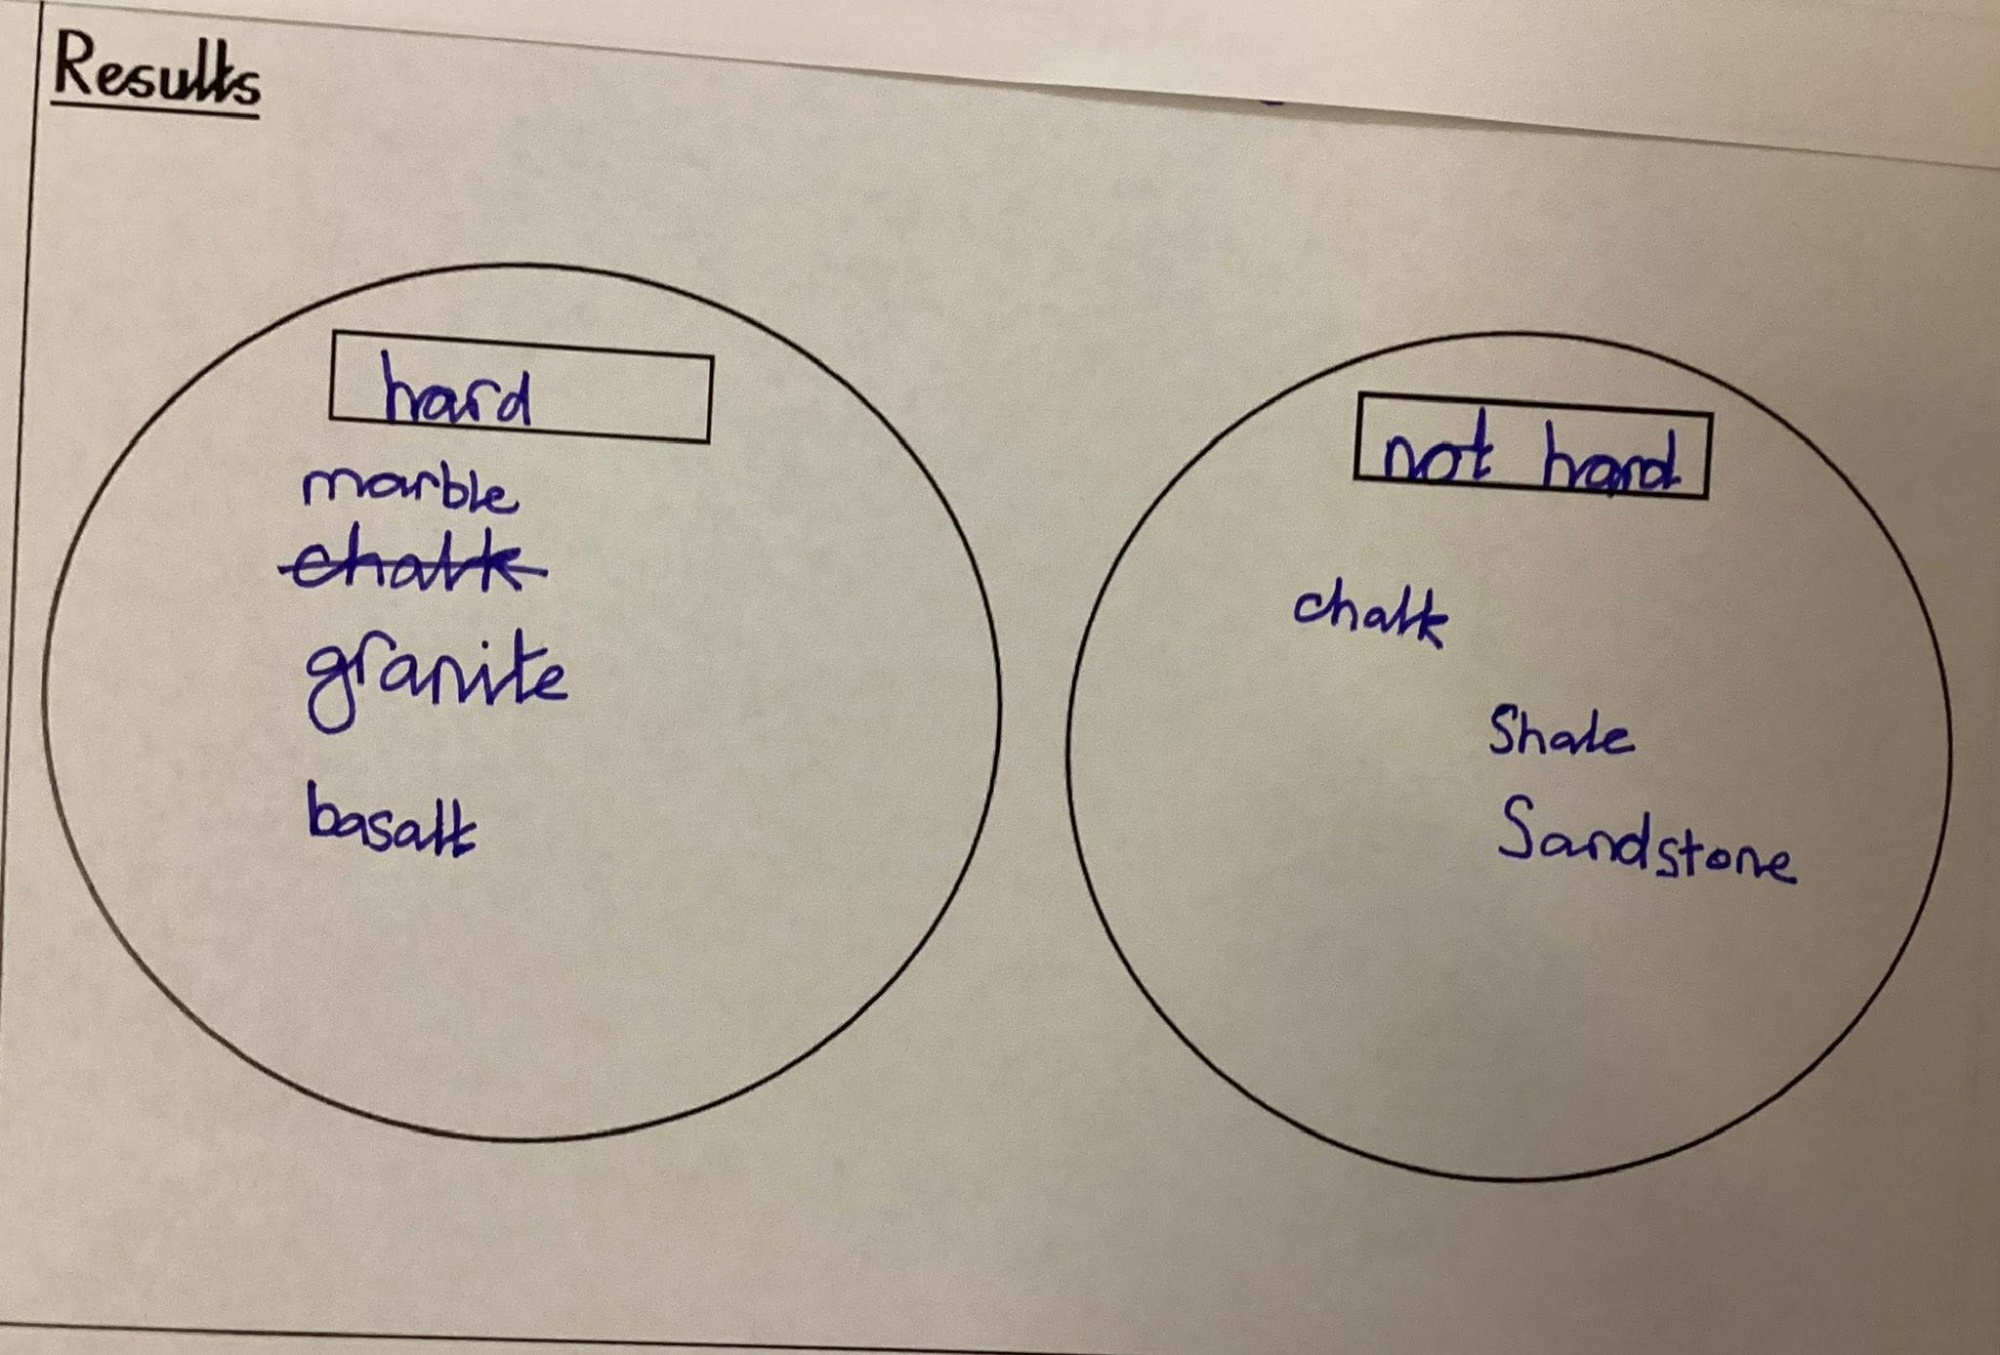 Results
hard
marble
chalk
granite
basalt
not hard
chalk
Shale
Sandstone